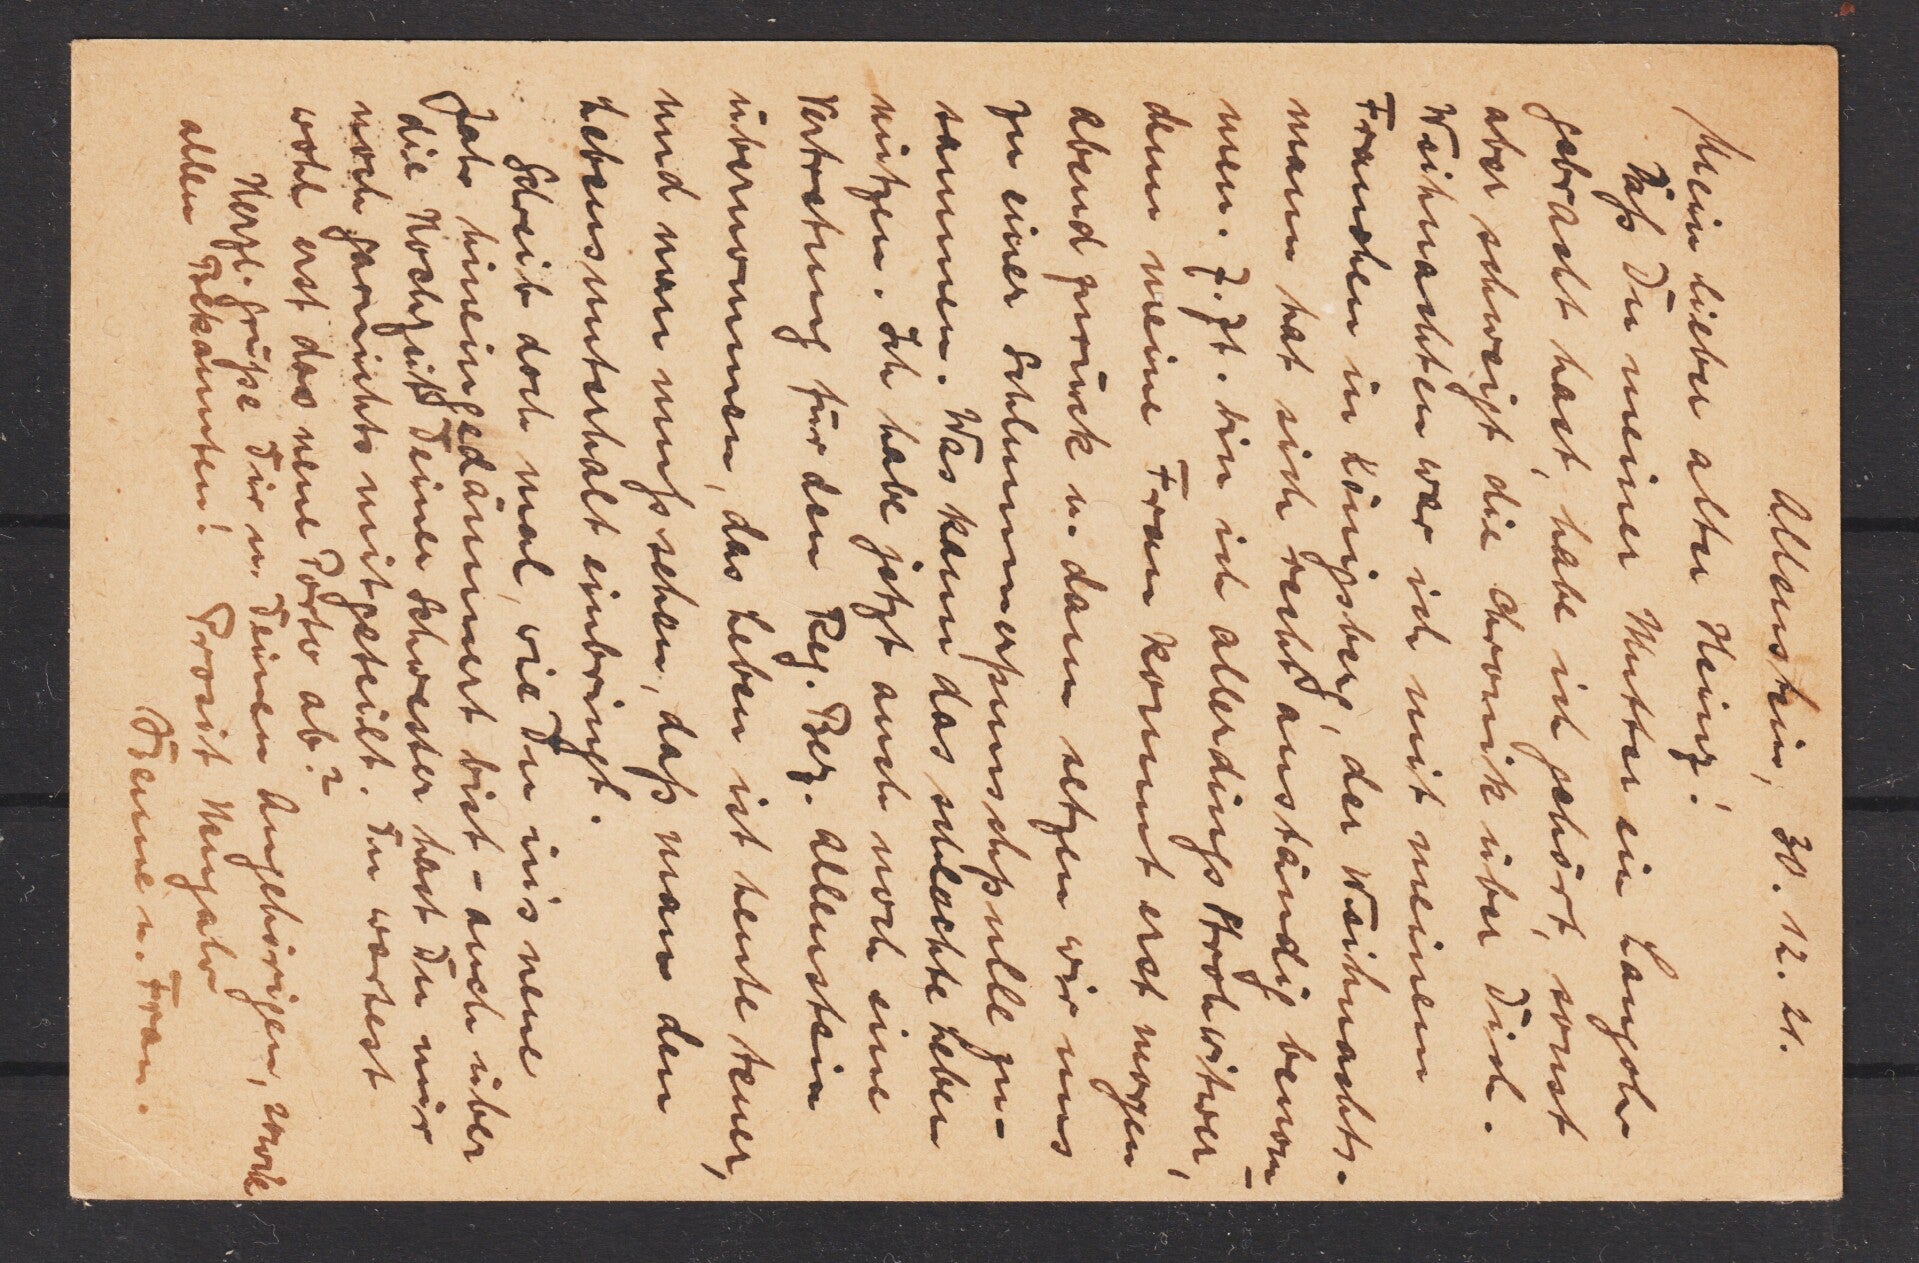 Allenstein, 30. 12. 21.
Mein lieber alter Heinz!
Daß Du meiner Mutter ein Langohr
gebracht hast, habe ich gehört, sonst
aber schweigt die Chronik über Dich.
Weihnachten war ich mit meinem
Frauchen in Königsberg, der Weihnachts-
mann hat sich recht anständig benom̄
men. Z. Zt. bin ich allerdings Strohwitwer,
denn meine Frau kommt erst morgen
abend zurück u. dann setzen wir uns
zu einer Schlummerpunschpulle zu-
sammen. Was kann das schlechte Leben
nützen. Ich habe jetzt auch noch eine
Vertretung für den Reg. Bez. Allenstein
übernommen, das Leben ist heute teuer,
und man muß sehen, daß man den
Lebensunterhalt einbringt.
Schreib doch mal, wie Du in's neue
Jahr hineingedämmert bist - auch über
die Hochzeit Deiner Schwester hast Du mir
noch garnichts mitgeteilt. Du wartest
wohl erst das neue Porto ab?
Herzl. Grüße Dir u. Deinen Angehörigen, sowie
allen Bekannten! Prosit Neujahr
u. Frau.